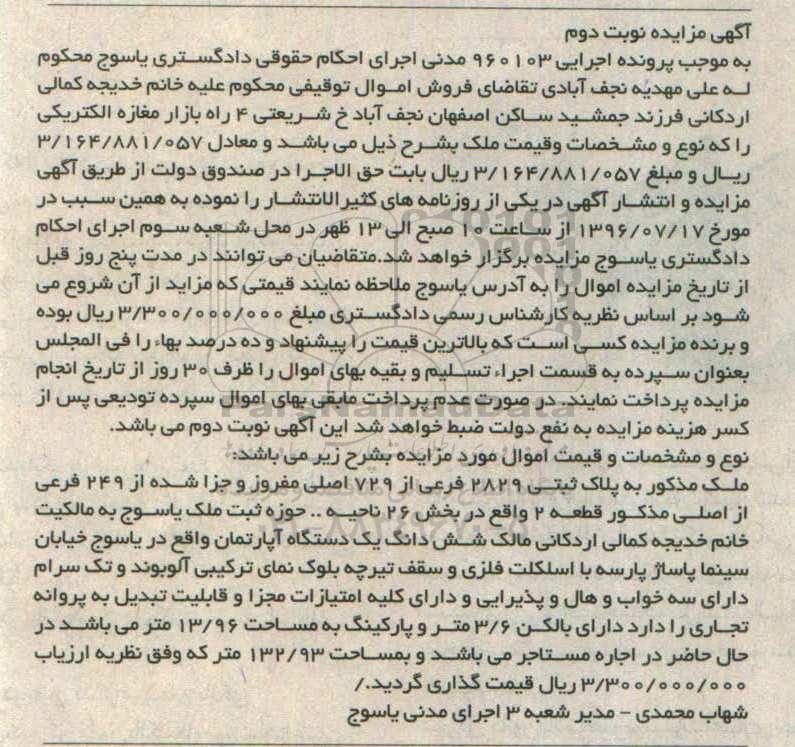 آگهی مزایده نوبت دوم
به موجب پرونده اجرایی ۹۶۰۱۰۳ مدنی اجرای احکام حقوقی دادگستری یاسوج محکوم
له علی مهدیه نجف آبادی تقاضای فروش اموال توقیفی محکوم علیه خانم خدیجه کمالی
اردکانی فرزند جمشید ساکن اصفهان نجف آباد خ شریعتی ۴ راه بازار مغازه الکتریکی
را که نوع و مشخصات وقیمت ملک بشرح ذیل می باشد و معادل ۳/۱۶۴/۸۸۱/۰۵۷
ریال و مبلغ ۳/۱۶۴/۸۸۱/۰۵۷ ریال بابت حق الاجرا در صندوق دولت از طریق آگهی
مزایده و انتشار آگهی در یکی از روزنامه های کثیرالانتشار را نموده به همین سبب در
مورخ ۱۳۹۶/۰۷/۱۷ از ساعت ۱۰ صبح الی ۱۳ ظهر در محل شعبه سوم اجرای احکام
دادگستری یاسوج مزایده برگزار خواهد شد.متقاضیان می توانند در مدت پنج روز قبل
از تاریخ مزایده اموال را به آدرس یاسوج ملاحظه نمایند قیمتی که مزاید از آن شروع می
شود بر اساس نظریه کارشناس رسمی دادگستری مبلغ ۳/۳۰۰/۰۰۰/۰۰۰ ریال بوده
و برنده مزایده کسی است که بالاترین قیمت را پیشنهاد و ده درصد بهاء را فی المجلس
بعنوان سپرده به قسمت اجراء تسلیم و بقیه بهای اموال را ظرف ۳۰ روز از تاریخ انجام
مزایده پرداخت نمایند. در صورت عدم پرداخت مابقی بهای اموال سپرده تودیعی پس از
کسر هزینه مزایده به نفع دولت ضبط خواهد شد این آگهی نوبت دوم می باشد.
نوع و مشخصات و قیمت اموال مورد مزایده بشرح زیر می باشد:
ملک مذکور به پلاک ثبتی ۲۸۲۹ فرعی از ۷۲۹ اصلی مفروز و جزا شده از ۲۴۹ فرعی
از اصلی مذکور قطعه ۲ واقع در بخش ۲۶ ناحیه .. حوزه ثبت ملک یاسوج به مالکیت
خانم خدیجه کمالی اردکانی مالک شش دانگ یک دستگاه آپارتمان واقع در یاسوج خیابان
سینما پاساژ پارسه با اسلکلت فلزی و سقف تیرچه بلوک نمای ترکیبی آلوبوند و تک سرام
دارای سه خواب و هال و پذیرایی و دارای کلیه امتیازات مجزا و قابلیت تبدیل به پروانه
تجاری را دارد دارای بالکن ۳/۶ متر و پارکینگ به مساحت ۱۳/۹۶ متر می باشد در
حال حاضر در اجاره مستاجر می باشد و بمساحت ۱۳۲/۹۳ متر که وفق نظریه ارزیاب
۳/۳۰۰/۰۰۰/۰۰۰ ریال قیمت گذاری گردید./
شهاب محمدی - مدیر شعبه ۳ اجرای مدنی یاسوج
ParsNamadData